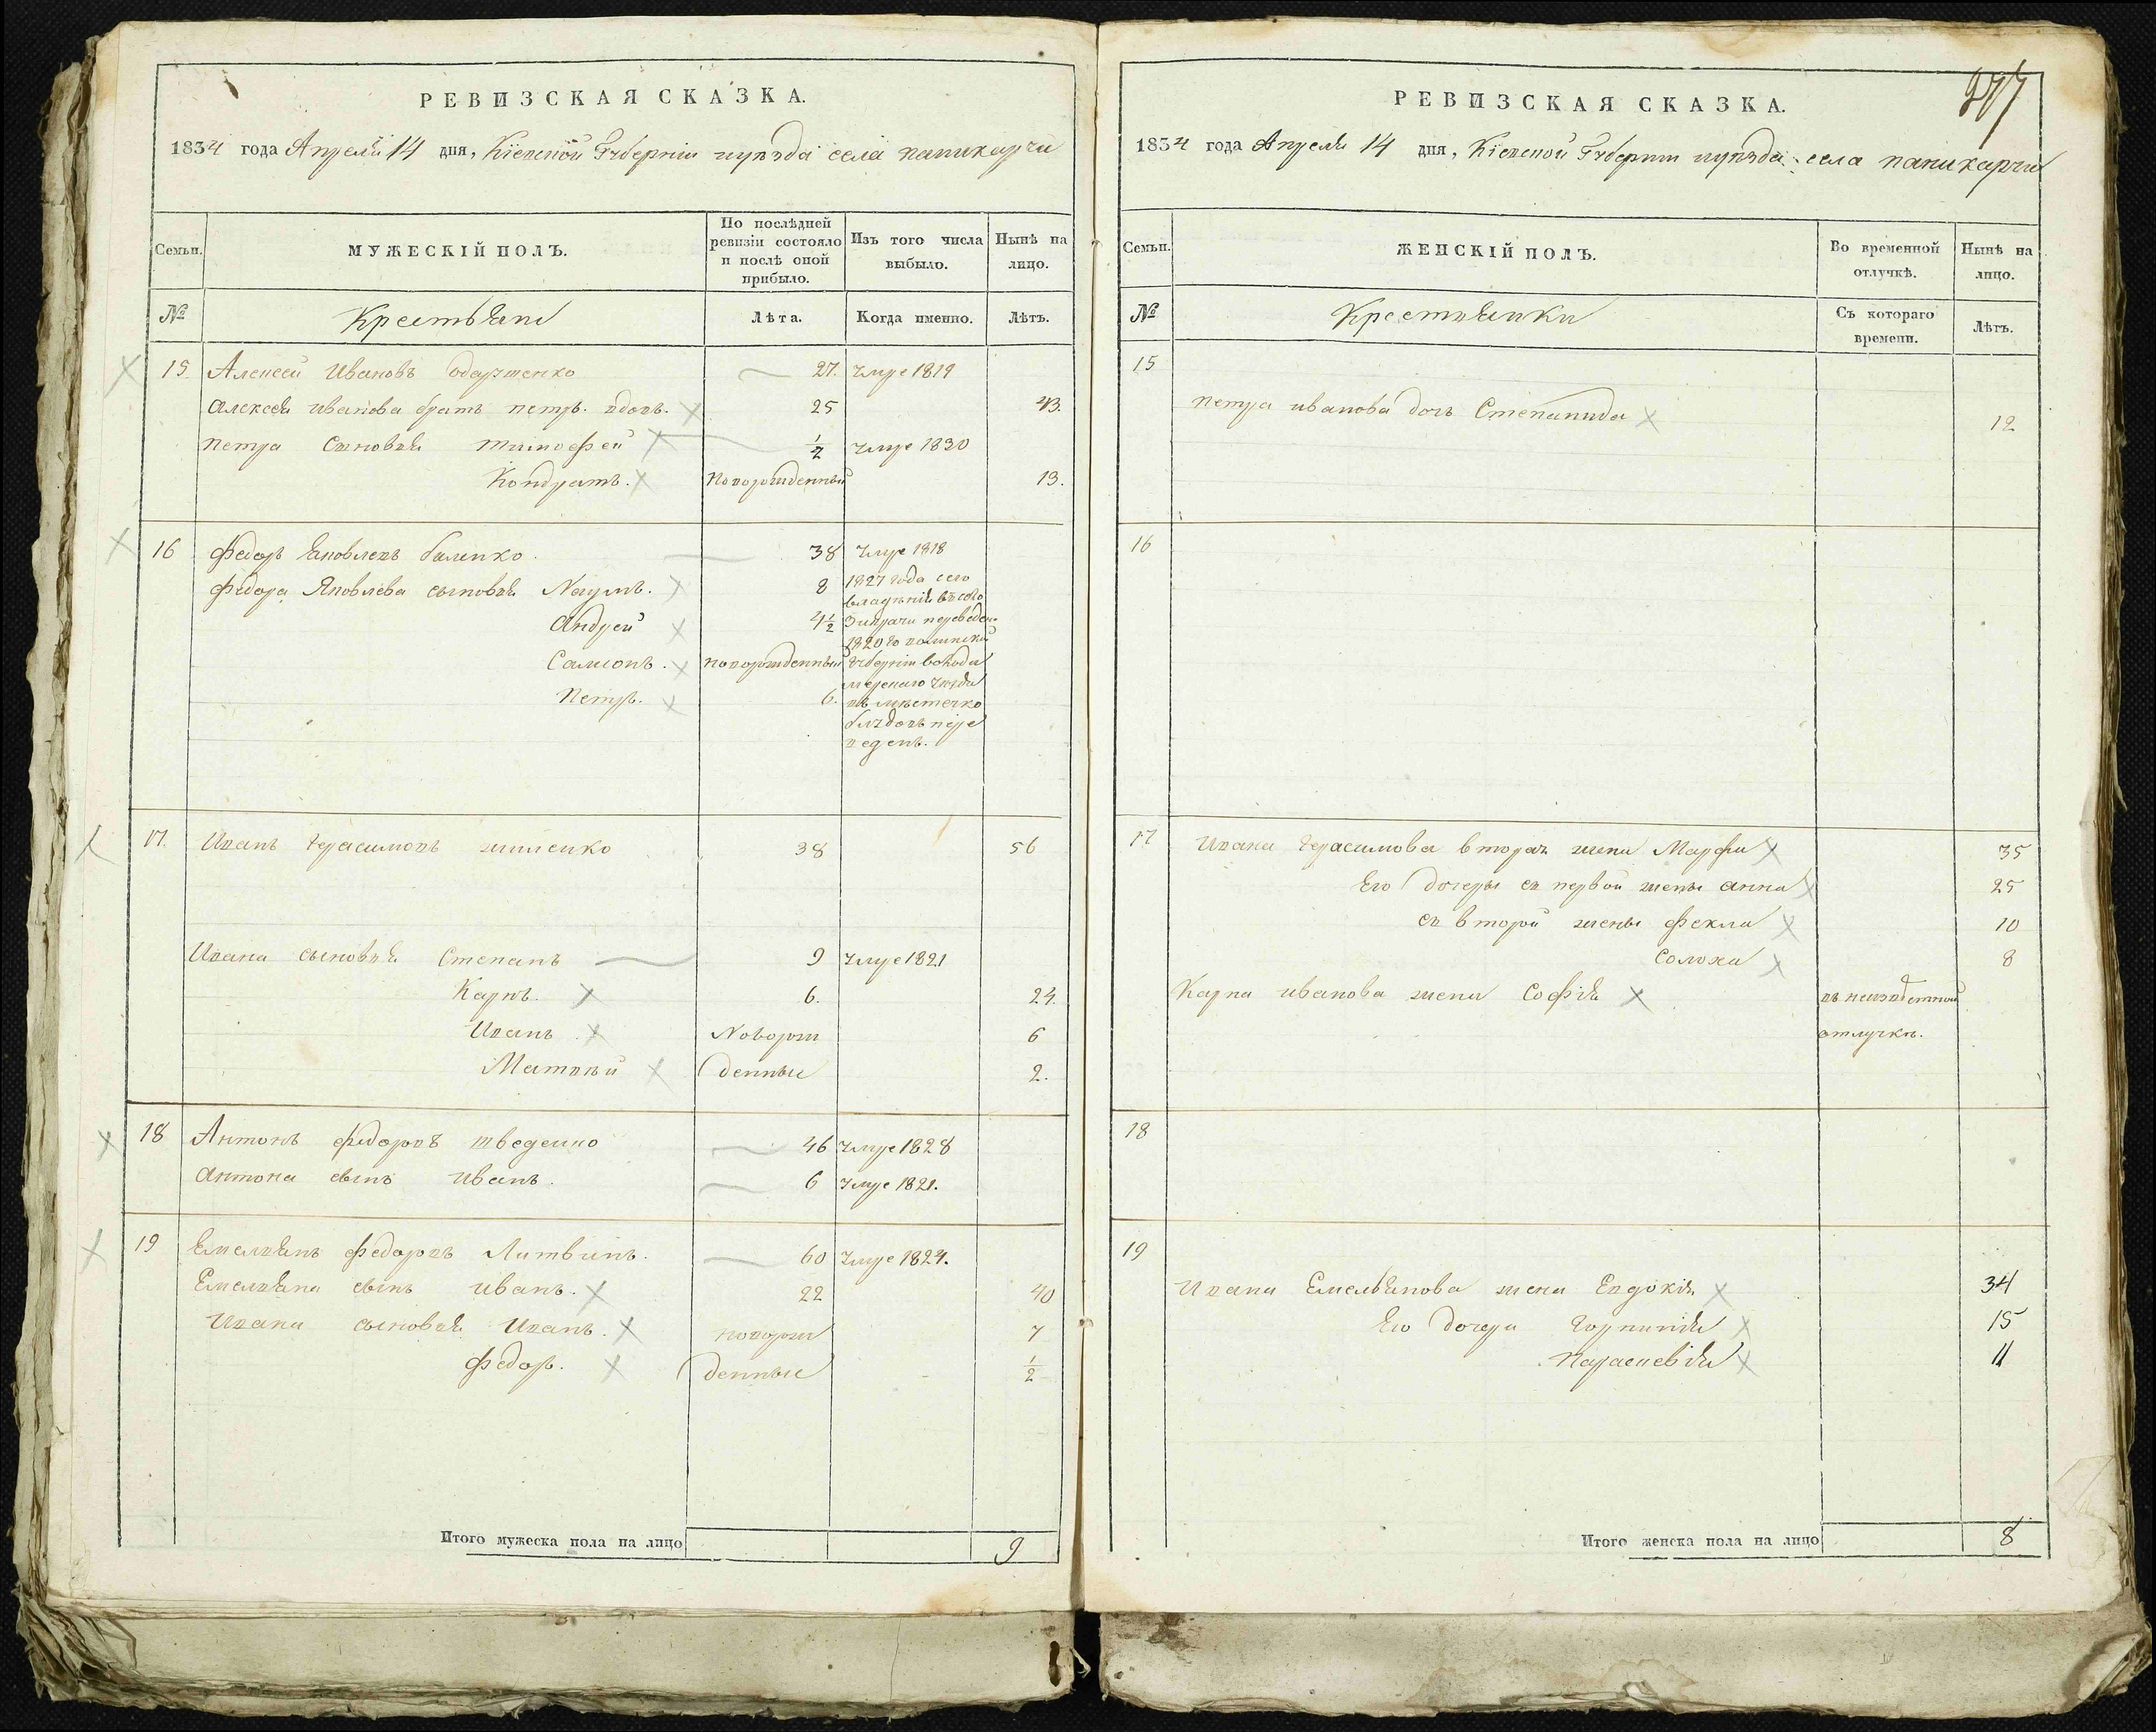 РЕВИЗСКАЯ СКАЗКА.
1834 года Апреля 14 дня, Кіевской Губерніи уѣзда села
Семьи.
МУЖЕСКІЙ ПОЛЪ.
По послѣдней ревизіи состояло и послѣ оной прибыло.
Изъ того числа выбыло.
Нынѣ на лицо.
№
Крестьяне
Лѣта.
Когда именно.
Лѣтъ.
15. Алексей Ивановъ 27. умре 1819
Алексея иванова братъ петръ. вдовъ. 25 43.
петра сыновья тимофей 1/2 умре 1830
Кондратъ. новорожденный 13.
16 Федоръ Яковлевъ 38 умре 1818
Федора Яковлева сыновья Наумъ. 8 1827 года сего
владѣнія въ село
Андрей 4 1/2 переведен
1820 го волынской
Самсонъ. новорожденный губерніи
уѣзда
Петръ. 6. въ мѣстечко
пере
веденъ.
17. Иванъ Герасимовъ 38 56
Ивана сыновья Степанъ 9 умре 1821
Карпъ. 6. 24.
Иванъ Новорож 6
Матвѣй денные 2.
18 Антонъ федоровъ 46 умре 1828
Антона сынъ иванъ. 6 умре 1821.
19 Емельянъ федоровъ Литвинъ. 60 умре 1824.
Емельяна сынъ иванъ. 22 40
Ивана сыновья Иванъ. новорож 7
федоръ. денные 1/2
Итого мужеска пола на лицо 9
277
РЕВИЗСКАЯ СКАЗКА.
1834 года Апреля 14 дня, Кіевской Губерніи уѣзда села
Семьи.
ЖЕНСКІЙ ПОЛЪ.
Во временной отлучкѣ.
Нынѣ на лицо.
№
Крестьянки
Съ котораго времени.
Лѣтъ.
15
петра иванова дочь Степанида 12
16
17 Ивана Герасимова вторая жена Марфа 35
Его дочеры съ первой жены анна 25
съ второй жены фекла 10
Солоха 8
Карпа иванова жена Софія въ неизвѣстной
отлучкѣ.
18
19
Ивана Емельянова жена Евдокія 34
Его дочери Горпинія 15
Параскевія 11
Итого женска пола на лицо 8